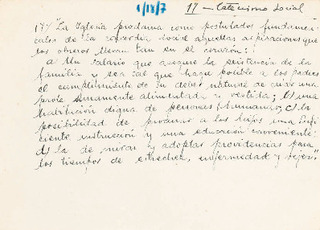 1/IV/7
11 — Catecismo Social
17) "La Iglesia proclama como postulados fundamen-
tales de la concordia social aquellas aspiraciones que
los obreros llevan tan en el corazón:
a Un salario que asegure la existencia de la
familia y sea tal que haga posible a los padres
el cumplimiento de su deber natural de criar una
prole sanamente alimentada y vestida; b) una
habitación digna de personas humanas; c) la
posibilidad de procurar a los hijos una sufi-
ciente instrucción y una educación conveniente;
d) la de mirar y adoptar providencias para
los tiempos de estrechez, enfermedad y vejez."